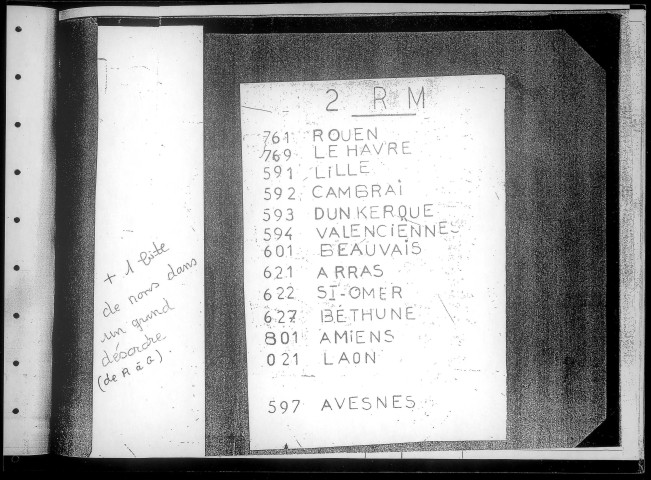 2 RM
761 ROUEN
769 LE HAVRE
591 LiLLE
592 CAMBRAi
593 DUNKERQUE
594 VALENCiENNES
601 BEAUVAiS
621 ARRAS
622 ST-OMER
627 BÉTHUNE
801 AMiENS
021 LAON
597 AVESNES
+ 1 boîte
de noms dans
un grand
désordre
(de A à G).